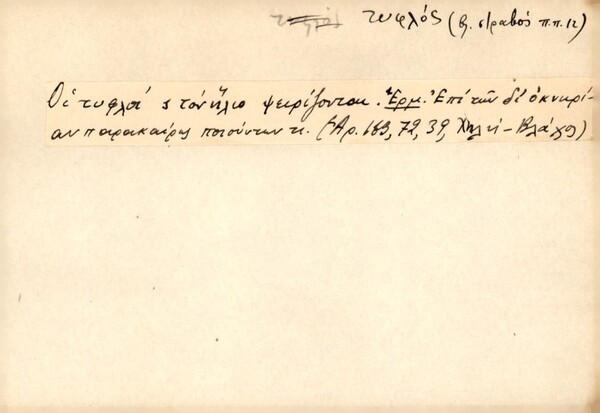 τυφλός (βλ. στραβός π.π. 12)
Οἱ τυφλοί ς τόν ἥλιο ψειρίζονται. Ἑρμ. Ἐπί τῶν δι' ὀκνηρί-
αν παρακαίρως ποιούντων τι. (Ἀρ. 163, 72, 39, Χηλή - Βλάχος)